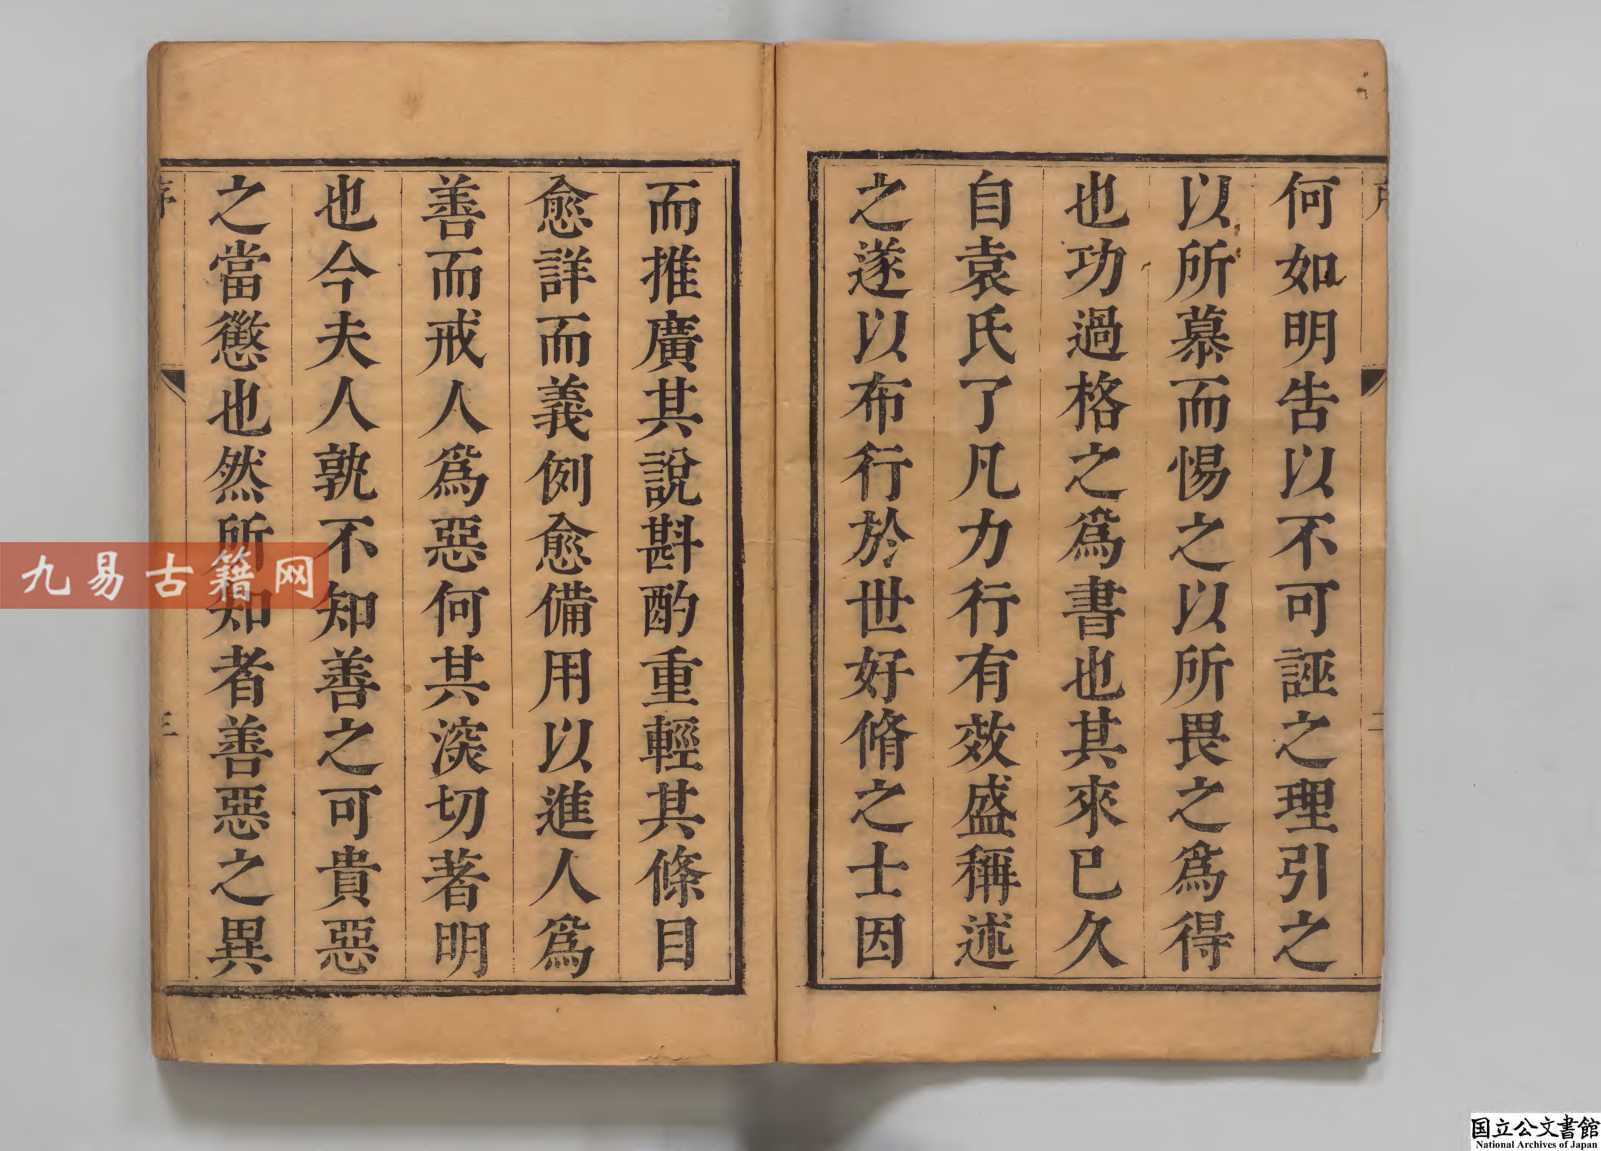 何如明告以不可誣之理引之
以所慕而惕之以所畏之爲得
也功過格之爲書也其來已久
自袁氏了凡力行有效盛稱述
之遂以布行於世好脩之士因
而推廣其說斟酌重輕其條目
愈詳而義例愈備用以進人爲
善而戒人爲惡何其深切著明
也今夫人孰不知善之可貴惡
之當懲也然所知者善惡之異
序
三
九易古籍网
国立公文書館
National Archives of Japan